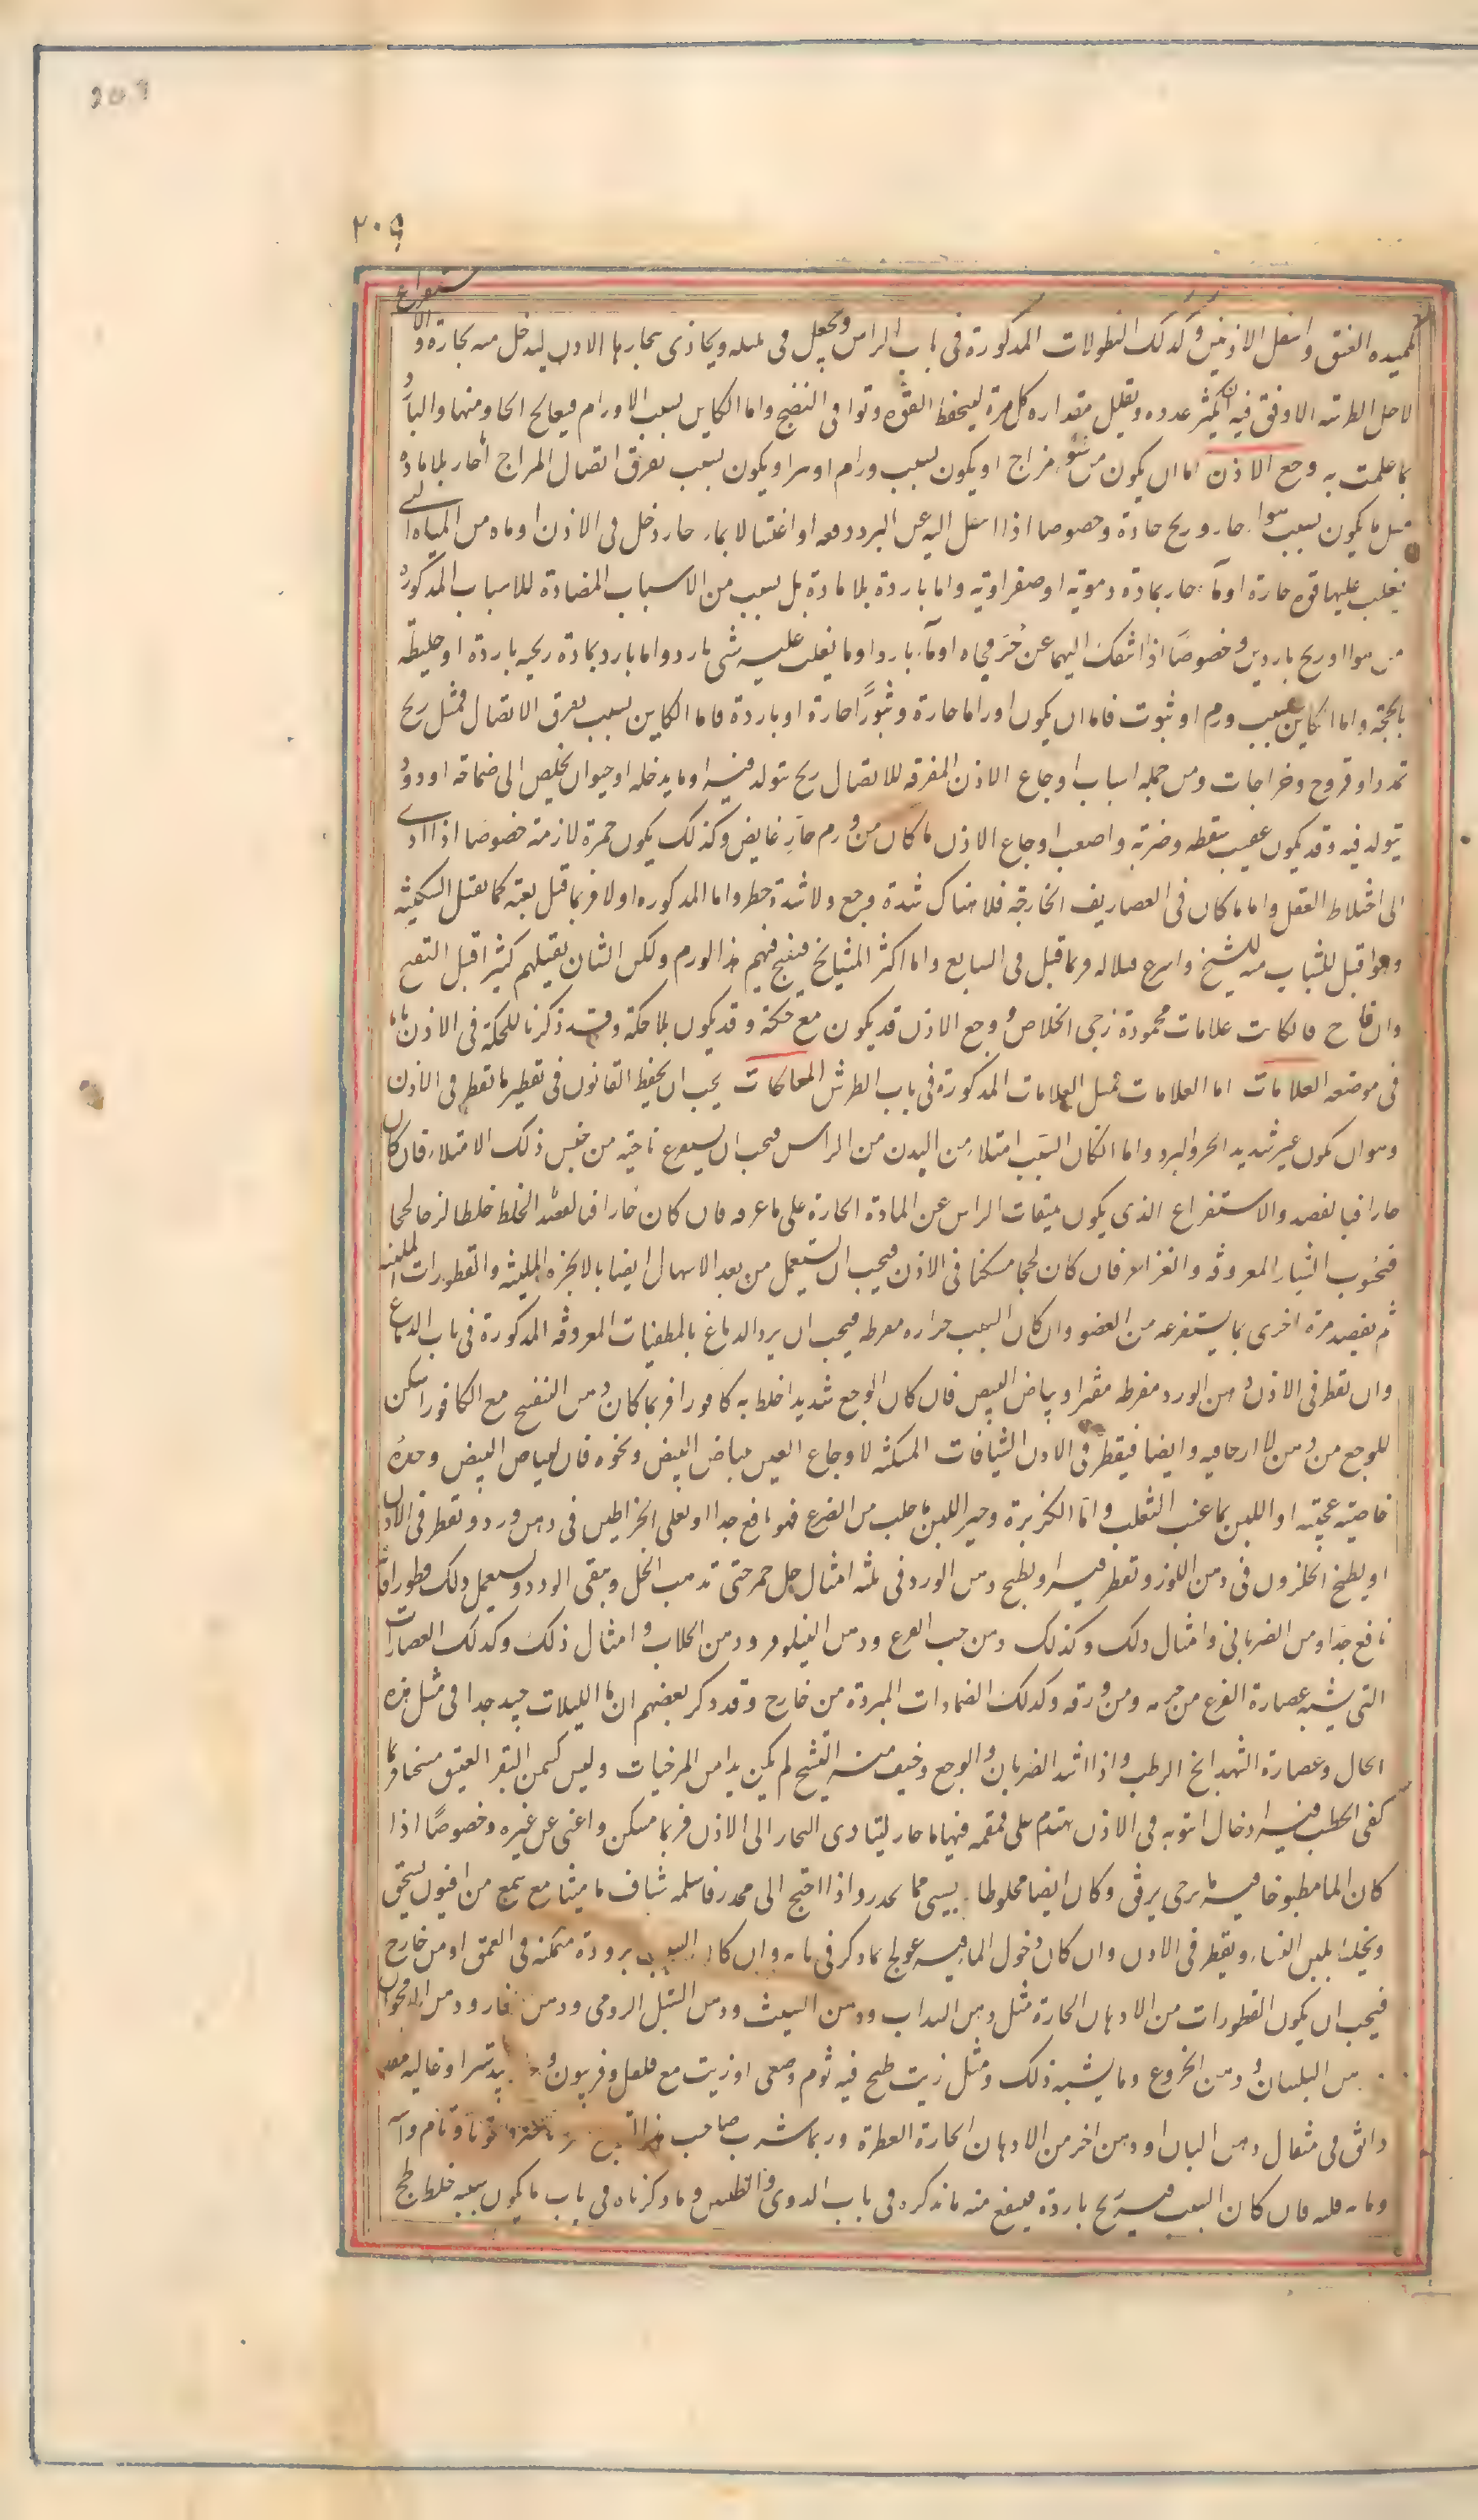 209
۲۰۹
العنق واسفل الاذنين وكذلك النطولات المذكورة فى باب الراس ويجعل فى ويحاذى بخارها الاذن ليدخل منه بخاره والاستفراغ
لاجل الاوفق فيه ان يكثر عدده ويقلل مقداره كل مرة ليحفظ القوة وتوافى النضج واما الكاين بسبب الاورام فيعالج الحار منها والبارد
بما علمت به وجع الاذن اما ان يكون من سوء مزاج او يكون بسبب ورام او يكون بسبب تفرق اتصال المزاج الحار بلا ماده
مثل ما يكون بسبب هوا حار وريح حادة وخصوصا اذا انتقل اليه عن البرد دفعه او اغتسالا بماء حار دخل فى الاذن او ماه من المياه التى
يغلب عليها قوه حارة او حار بمادة دموية او صفراوية واما باردة بلا مادة بل بسبب من الاسباب المضادة للاسباب المذكورة
من هوا او ريح باردين وخصوصا اذا انتقل اليهما عن حر او ماء بارد او ما يغلب عليه شى بارد واما بارد بمادة ريحيه باردة او خليطه
واما الكاين بسبب ورم او بثوت فاما ان يكون اوراما حارة وبثورا حارة او باردة فاما الكاين بسبب تفرق الاتصال فمثل ريح
تمدد او قروح وخراجات ومن جمله اسباب اوجاع الاذن المفرقه للاتصال ريح تتولد فيه او ما يدخله او حيوان يخلص الى صماخه او دود
يتولد فيه وقد يكون عقيب سقطه وضربة واصعب اوجاع الاذن ما كان من ورم حار غايض وكذلك يكون حمرة لازمة خصوصا اذا ادى
الى اختلاط العقل واما ما كان فى الغضاريف الخارجه فلا هناك شدة وجع ولا شدة خطر واما المذكوره اولا فربما قتل بغتة كما تقتل السكتة
وهو اقتل للشباب منه للشيخ واسرع قتلا له وربما قتل فى السابع واما اكثر المشايخ فينفتح فيهم هذا الورم ولكن الشان يقتلهم كثيرا قبل التقيح
وان قاح فاذا كانت علامات محمودة رجى الخلاص ووجع الاذن قد يكون مع حكة وقد يكون بلا حكة وقد ذكرنا للحكة فى الاذن بابا
فى موضعه العلامات اما العلامات فمثل العلامات المذكورة فى باب الطرش المعالجات يجب ان يحفظ القانون فى تقطير ما تقطر فى الاذن
وهو ان يكون غير شديد الحر والبرد واما ان كان السبب امتلاء من البدن من الراس فيجب ان يستفرغ ناحيته من جنس ذلك الامتلاء فان كان
حارا فبالفصد والاستفراغ الذى يكون بمنقيات الراس عن المادة الحارة على ما عرفه فان كان حارا فبالفصد الخلط خلطا لزجا لحجا
فبحبوب الشيار المعروفه والغراغر فان كان لحجا مسكنا فى الاذن فيجب ان يستعمل من بعد الاسهال ايضا بالابخره الملينه والقطورات الملينه
ثم يقصد مرة اخرى بما يستفرغه من العضو وان كان السبب حراره مفرطه فيجب ان يبرد الدماغ بالمطفيات المعروفه المذكورة فى باب الدماغ
وان تقطر فى الاذن دهن الورد مفرطه مفترا وبياض البيض فان كان الوجع شديدا خلط به كافورا فربما كان دهن البنفسج مع الكافور اسكن
للوجع من دهن لارخائه وايضا فيقطر فى الاذن الشيافات المسكنة لاوجاع العين ببياض البيض ونحوه فان لبياض البيض وحده
خاصية عجيبه او اللبن بما عنب الثعلب وماء الكزبرة وخير اللبن ما حلب من الضرع فهو نافع جدا او تغلى الخراطين فى دهن ورد وتقطر فى الاذن
او يطبخ الحلزون فى دهن اللوز وتقطر فيه او يطبخ دهن الورد فى ثلثه امثال خل خمر حتى تذهب الخل ويبقى الورد ويستعمل ذلك قطورا فانه
نافع جدا من الضربانى وامثال ذلك وكذلك دهن حب القرع ودهن النيلوفر ودهن الخلاف وامثال ذلك وكذلك العصارات
التى يشبه عصارة القرع من جرمه ومن ورقه وكذلك الضمادات المبردة من خارج وقد ذكر بعضهم ان ماء اللبلاب جيد جدا فى مثل هذه
الحال وعصارة الشهدانج الرطب واذا اشتد الضربان والوجع وخيف منه التشنج لم يكن بدا من المرخيات وليس كسمن البقر العتيق مسخنا فربما
كفى الخطب فيه ادخال انبوبه فى الاذن مهندم على قمقمه فيها ما حار ليتادى البخار الى الاذن فربما سكن واغنى عن غيره وخصوصا اذا
كان الما مطبوخا فيه مرخى برفق وكان ايضا مخلوطا بشى مما يخدر واذا احتيج الى مخدر فاسلمه شياف ماميثا مع من افيون يسحق
ويحل بلبن النساء ويقطر فى الاذن وان كان دخول الماء فيه عولج بما ذكر فى بابه وان كان السبب برودة متمكنه فى العمق او من خارج
فيجب ان يكون القطورات من الادهان الحارة مثل دهن السداب ودهن الشبث ودهن السنبل الرومى ودهن الغار ودهن الاقحوان
دهن البلسان ودهن الخروع وما يشبه ذلك ومثل زيت طبخ فيه ثوم وصفى او زيت مع فلفل وفربيون وجندبيدستر او غاليه مقدار
دانق فى مثقال دهن البان او دهن اخر من الادهان الحارة العطرة وربما شرب صاحب هذا
قلته فان كان السبب فيه ريح باردة فينفع منه ما نذكره فى باب الدوى والطنين وما ذكرناه فى باب ما يكون سببه خلط لحج